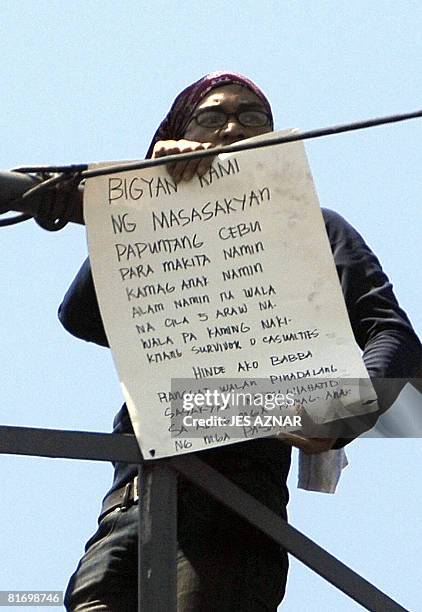 BIGYAN KAMI
NG MASASAKYAN
PAPUNTANG CEBU
PARA MAKITA NAMIN
KAMAG ANAK NAMIN
ALAM NAMIN NA WALA
NA CILA 3 ARAW NA.
WALA PA KAMING NAKI-
KITANG SURVIVOR O CASUALTIES
HINDE AKO BABBA
HANGGAT WALAN PINADALANG
SASAKYAN
SA MGA KAMAG-ANAK
NG MGA
gettyimages
Credit: JES AZNAR
81698746